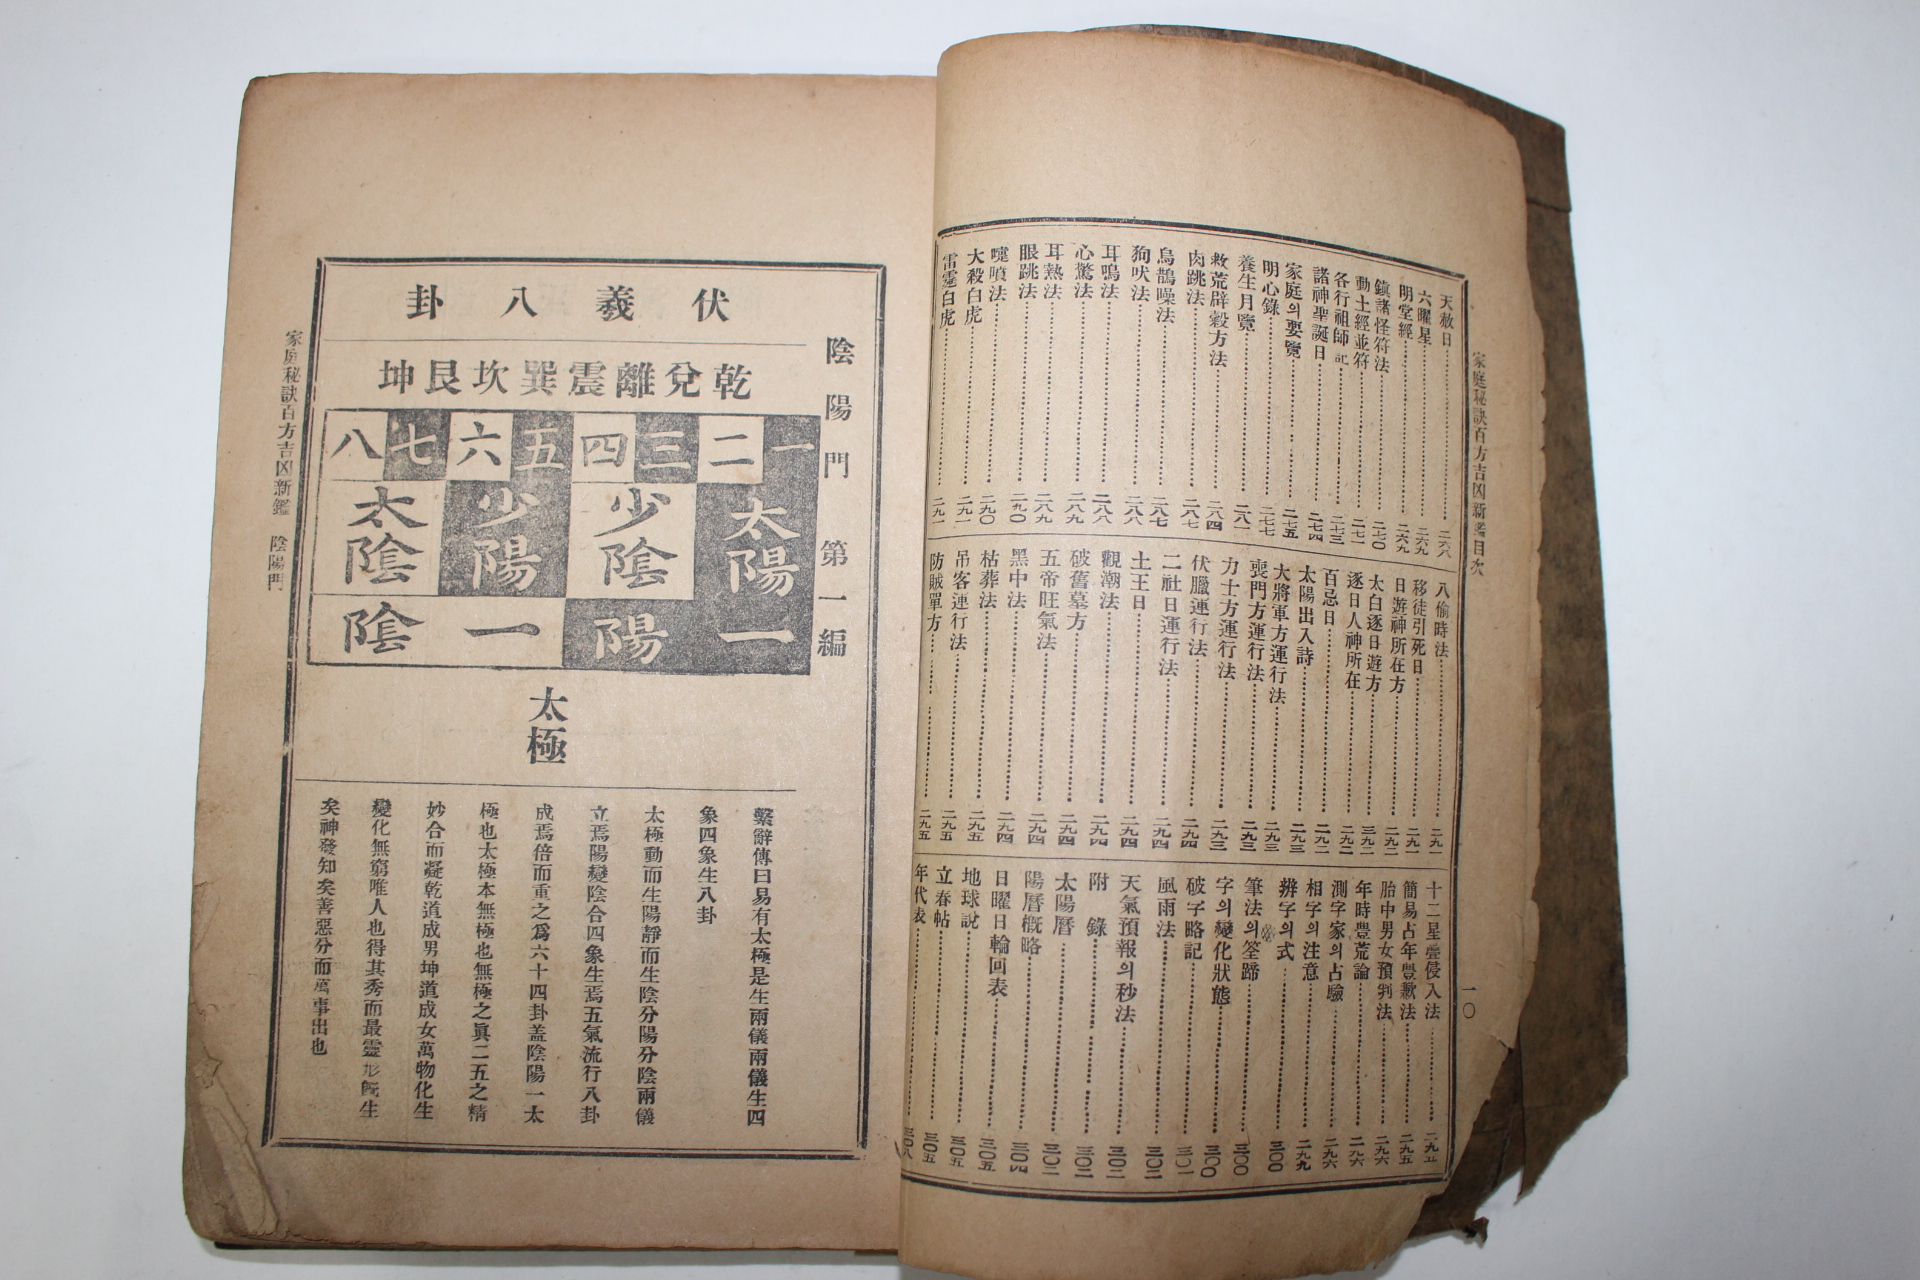 家庭秘訣百方吉凶新鑑目次
一〇
天赦日 二六八
六曜星 二六九
明堂經 二六九
鎭諸怪符法 二七〇
動土經並符 二七一
各行祖師記 二七三
諸神聖誕日 二七四
家庭의要覽 二七五
明心錄 二七七
養生月覽 二八一
救荒辟穀方法 二八四
肉跳法 二八七
烏鵲噪法 二八七
狗吠法 二八八
耳鳴法 二八八
心驚法 二八九
耳熱法 二八九
眼跳法 二九〇
嚏噴法 二九〇
大殺白虎 二九一
雷霆白虎 二九一
八偷時法 二九一
移徒引死日 二九一
日遊神所在方 二九二
太白逐日遊方 三九二
逐日人神所在 二九二
百忌日 二九二
太陽出入詩 二九三
大將軍方運行法 二九三
喪門方運行法 二九三
力士方運行法 二九三
伏臘運行法 二九四
二社日運行法 二九四
土王日 二九四
觀潮法 二九四
破舊墓方 二九四
五帝旺氣法 二九四
黑中法 二九四
枯葬法 二九五
吊客連行法 二九五
防賊單方 二九五
十二星疊侵入法 二九五
簡易占年豊歉法 二九五
胎中男女預判法 二九六
年時豊荒論 二九六
測字家의占驗 二九六
相字의注意 二九九
辨字의式 三〇〇
筆法의筌蹄 三〇〇
字의變化狀態 三〇〇
破字略記 三〇一
風雨法 三〇二
天氣預報의秒法 三〇二
附錄 三〇二
太陽曆 三〇二
陽曆槪略 三〇四
日曜日輪回表 三〇五
地球說 三〇五
立春帖 三〇五
年代表 三〇八
陰陽門 第一編
伏羲八卦
乾兌離震巽坎艮坤
一二三四五六七八
太陽 少陰 少陽 太陰
一 陽 一 陰
太極
繫辭傳曰易有太極是生兩儀兩儀生四
象四象生八卦
太極動而生陽靜而生陰分陽分陰兩儀
立焉陽變陰合四象生焉五氣流行八卦
成焉倍而重之爲六十四卦盖陰陽一太
極也太極本無極也無極之眞二五之精
妙合而凝乾道成男坤道成女萬物化生
變化無窮唯人也得其秀而最靈形旣生
矣神發知矣善惡分而萬事出也
家庭秘訣百方吉凶新鑑 陰陽門